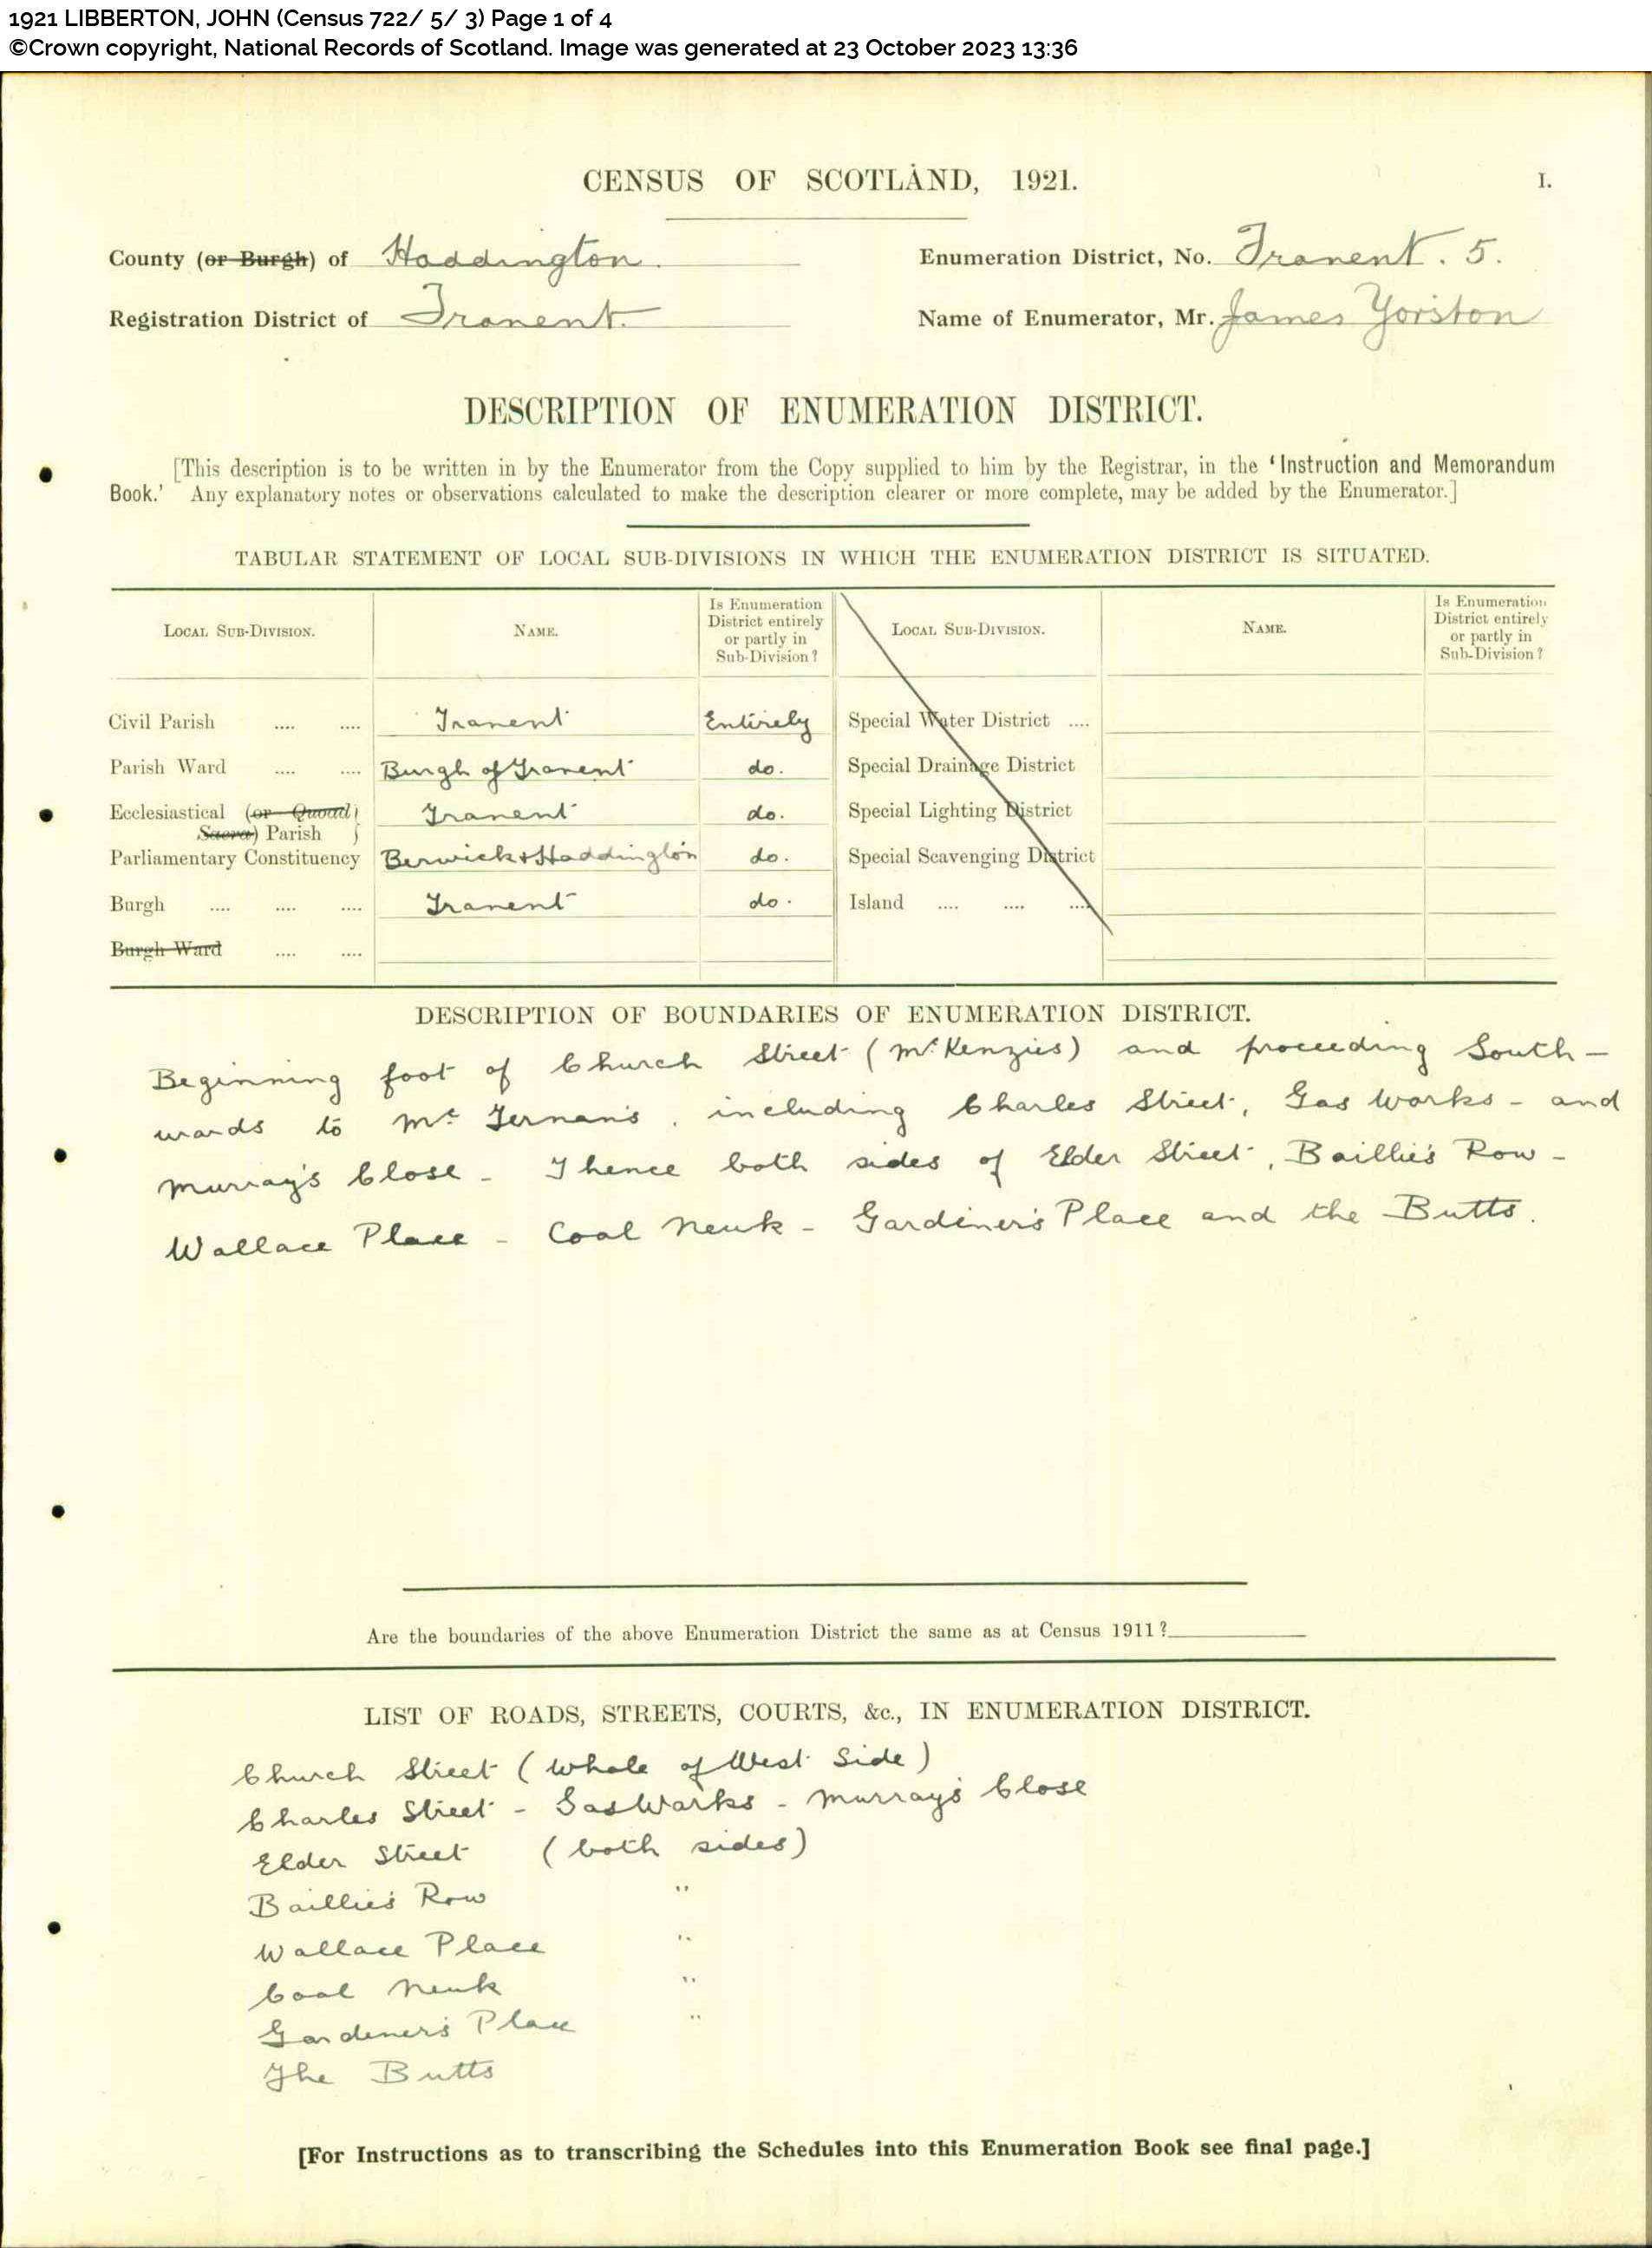 1921 LIBBERTON, JOHN (Census 722/ 5/ 3) Page 1 of 4
©Crown copyright, National Records of Scotland. Image was generated at 23 October 2023 13:36
CENSUS OF SCOTLAND, 1921.
I.
County (or Burgh) of Haddington.
Enumeration District, No. Tranent. 5.
Registration District of Tranent.
Name of Enumerator, Mr. James Yorston
DESCRIPTION OF ENUMERATION DISTRICT.
[This description is to be written in by the Enumerator from the Copy supplied to him by the Registrar, in the 'Instruction and Memorandum
Book.' Any explanatory notes or observations calculated to make the description clearer or more complete, may be added by the Enumerator.]
TABULAR STATEMENT OF LOCAL SUB-DIVISIONS IN WHICH THE ENUMERATION DISTRICT IS SITUATED.
LOCAL SUB-DIVISION. NAME. Is Enumeration District entirely or partly in Sub-Division? LOCAL SUB-DIVISION. NAME. Is Enumeration District entirely or partly in Sub-Division?
Civil Parish .... .... Tranent Entirely Special Water District ....
Parish Ward .... .... Burgh of Tranent do. Special Drainage District
Ecclesiastical (or Quoad Sacra) Parish Tranent do. Special Lighting District
Parliamentary Constituency Berwick & Haddington do. Special Scavenging District
Burgh .... .... .... Tranent do. Island .... .... ....
Burgh Ward .... ....
DESCRIPTION OF BOUNDARIES OF ENUMERATION DISTRICT.
Beginning foot of Church Street (McKenzies) and proceeding South-
wards to Mc Ternan's, including Charles Street, Gas Works - and
Murray's Close - Thence both sides of Elder Street, Baillie's Row -
Wallace Place - Coal Neuk - Gardiner's Place and the Butts.
Are the boundaries of the above Enumeration District the same as at Census 1911?
LIST OF ROADS, STREETS, COURTS, &c., IN ENUMERATION DISTRICT.
Church Street (Whole of West Side)
Charles Street - Gas Works - Murray's Close
Elder Street (both sides)
Baillie's Row "
Wallace Place "
Coal Neuk "
Gardiner's Place "
The Butts
[For Instructions as to transcribing the Schedules into this Enumeration Book see final page.]